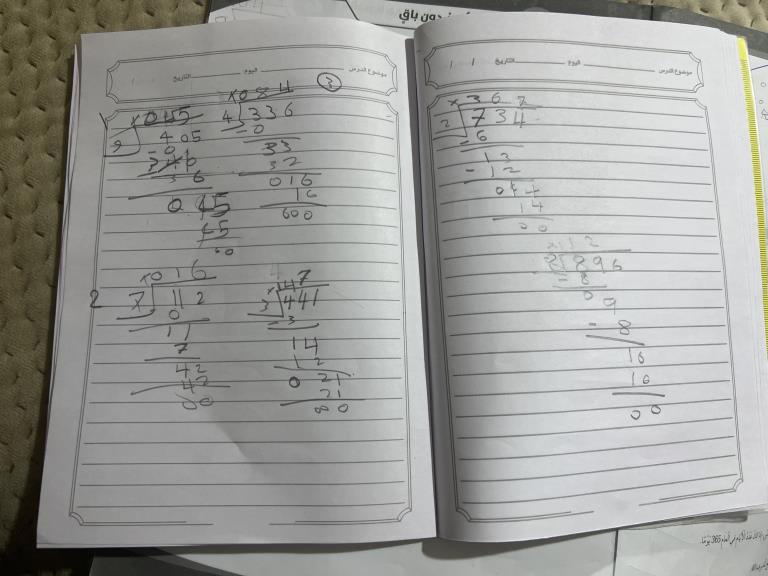 دون باقٍ
موضوع الدرس
اليوم
التاريخ
3
× 0 4 5
9
4 0 5
0
3 6
0 4 5
4 5
0 0
× 0 8 4
4 3 3 6
- 0
3 3
3 2
0 1 6
1 6
0 0 0
2
× 0 1 6
7 1 1 2
0
1 1
7
4 2
4 2
0 0
1 4 7
3 4 4 1
- 3
1 4
1 2
0 2 1
2 1
0 0
موضوع الدرس
اليوم
التاريخ
/ /
× 3 6 7
2 7 3 4
- 6
1 3
- 1 2
0 1 4
1 4
0 0
× 1 1 2
8 8 9 6
- 8
0 9
- 8
1 6
1 6
0 0